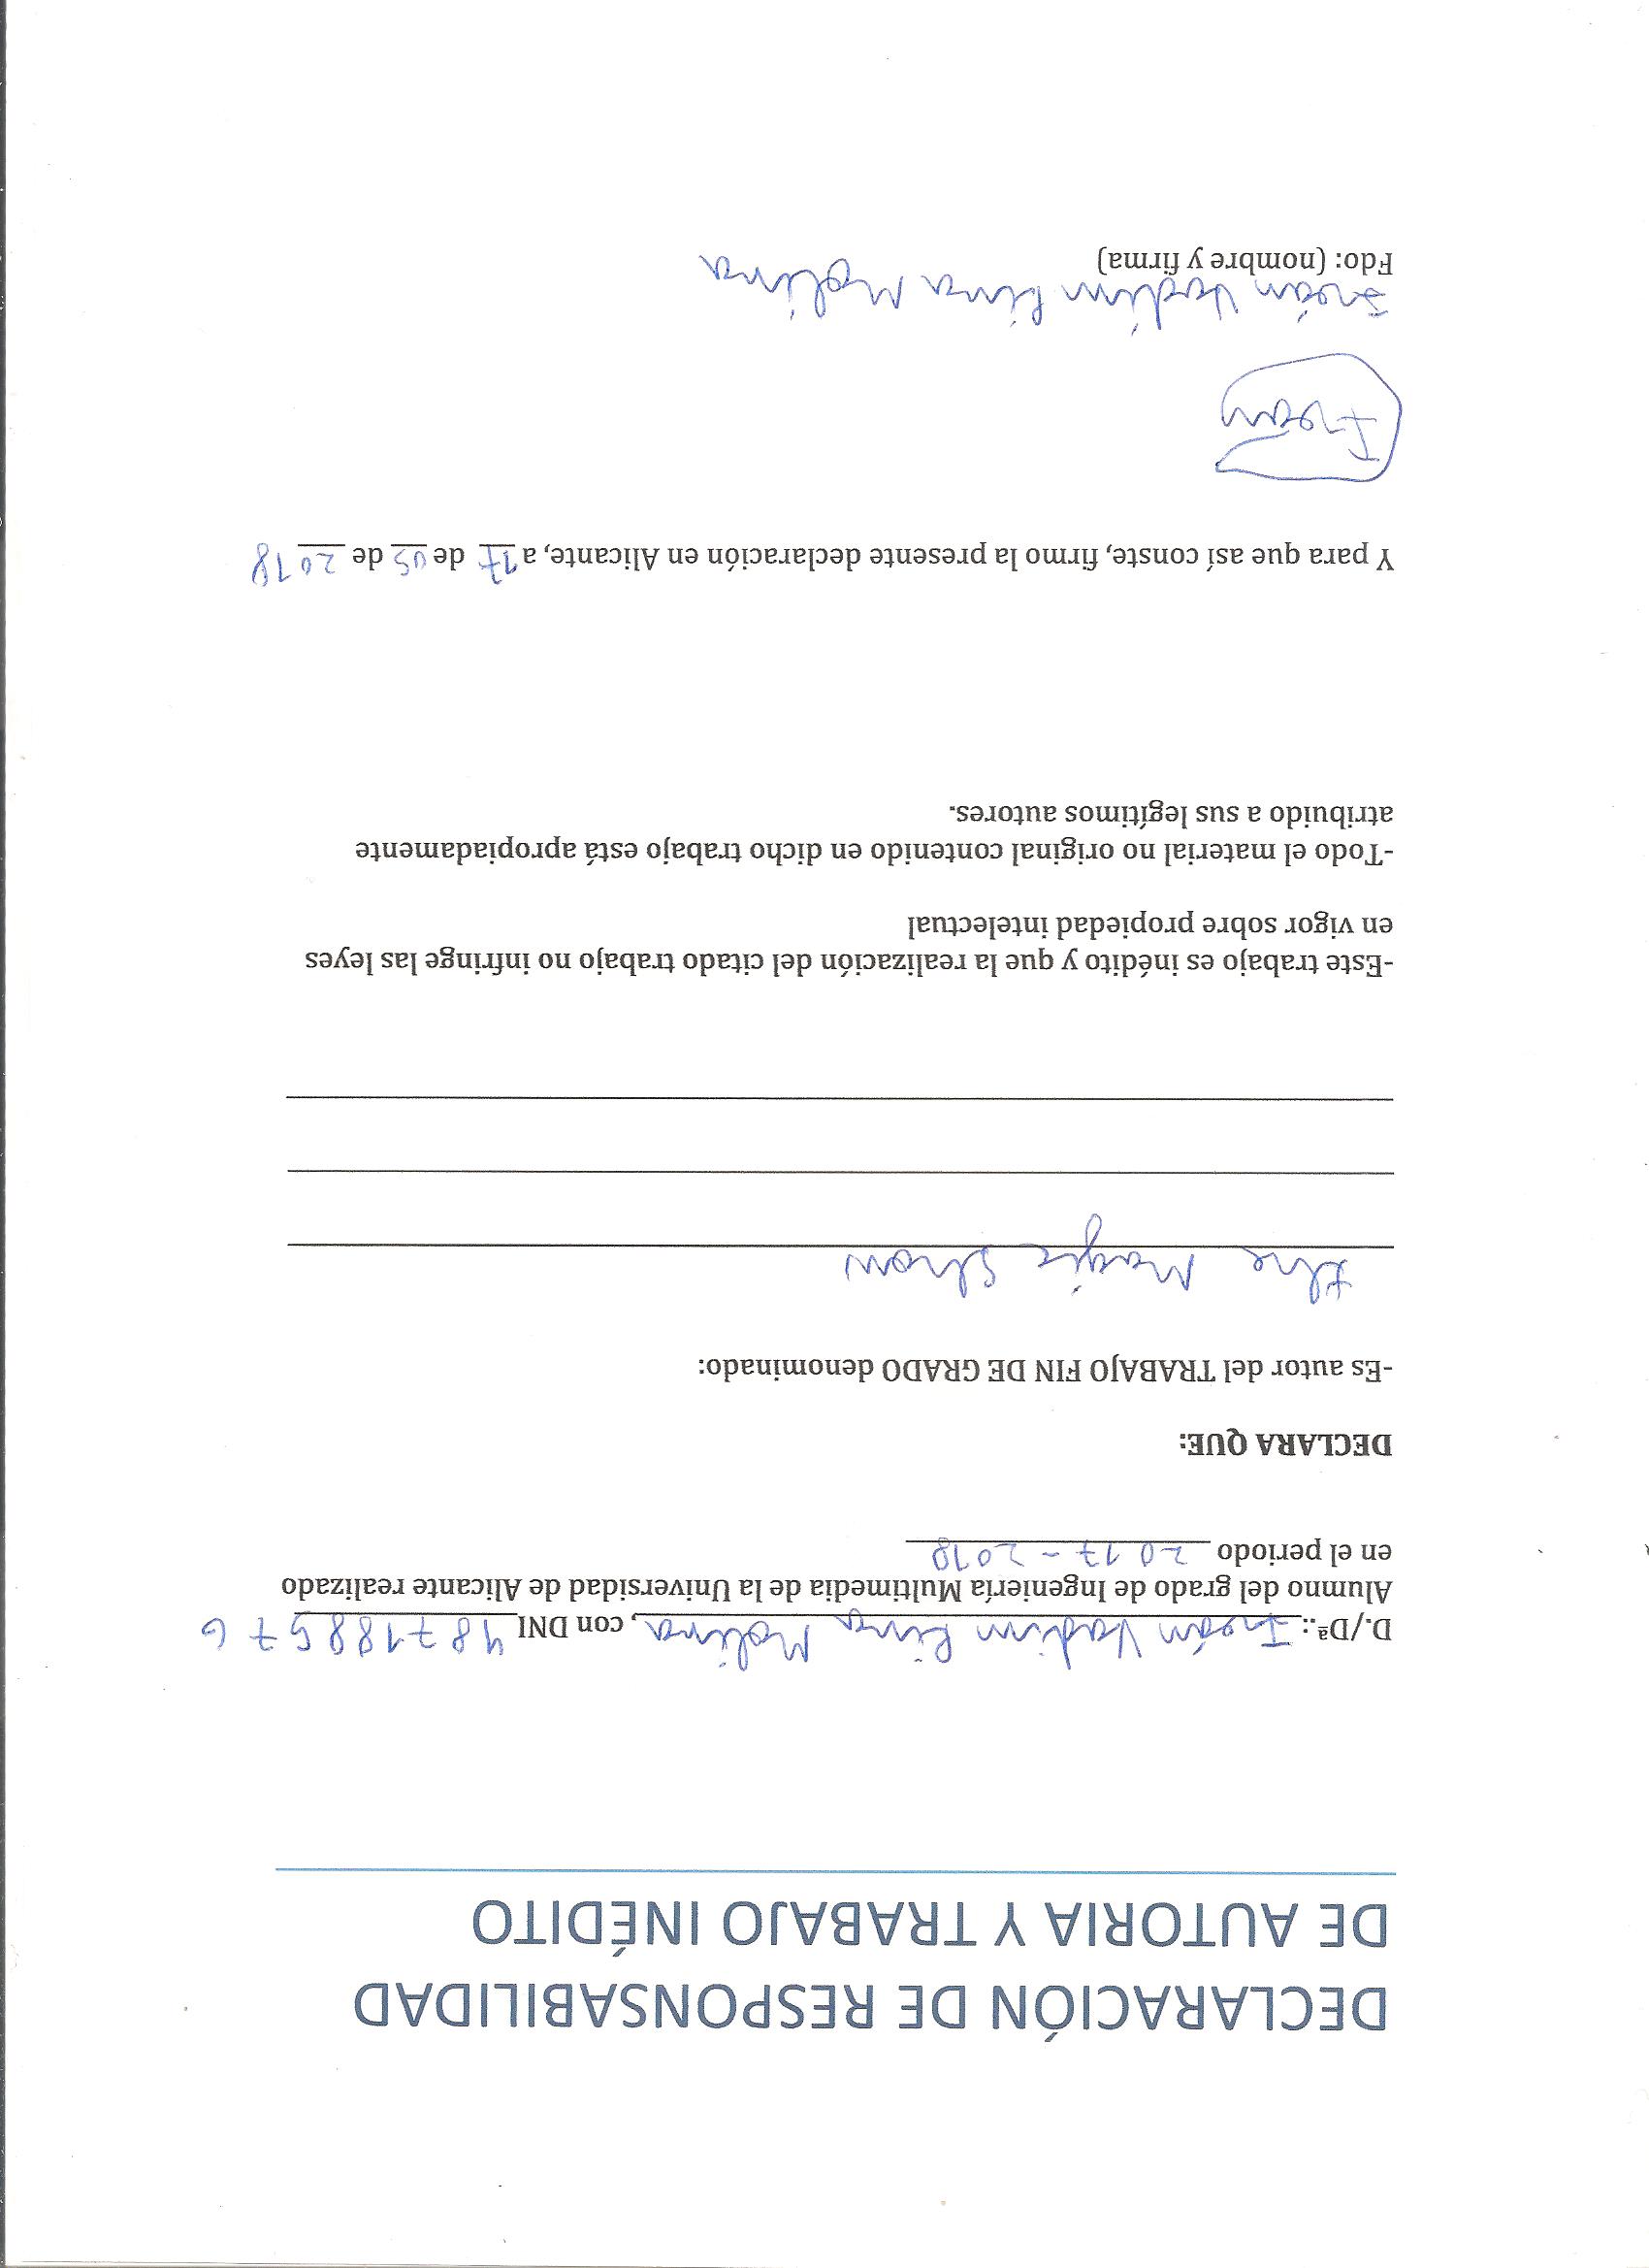 DECLARACIÓN DE RESPONSABILIDAD
DE AUTORIA Y TRABAJO INÉDITO
D./Dª.: Iván Vadim Pina Molina, con DNI 48718857G
Alumno del grado de Ingeniería Multimedia de la Universidad de Alicante realizado
en el periodo 2017-2018
DECLARA QUE:
-Es autor del TRABAJO FIN DE GRADO denominado:
the Magic Show
-Este trabajo es inédito y que la realización del citado trabajo no infringe las leyes
en vigor sobre propiedad intelectual
-Todo el material no original contenido en dicho trabajo está apropiadamente
atribuido a sus legítimos autores.
Y para que así conste, firmo la presente declaración en Alicante, a 17 de 05 de 2018
Iván
Iván Vadim Pina Molina
Fdo: (nombre y firma)